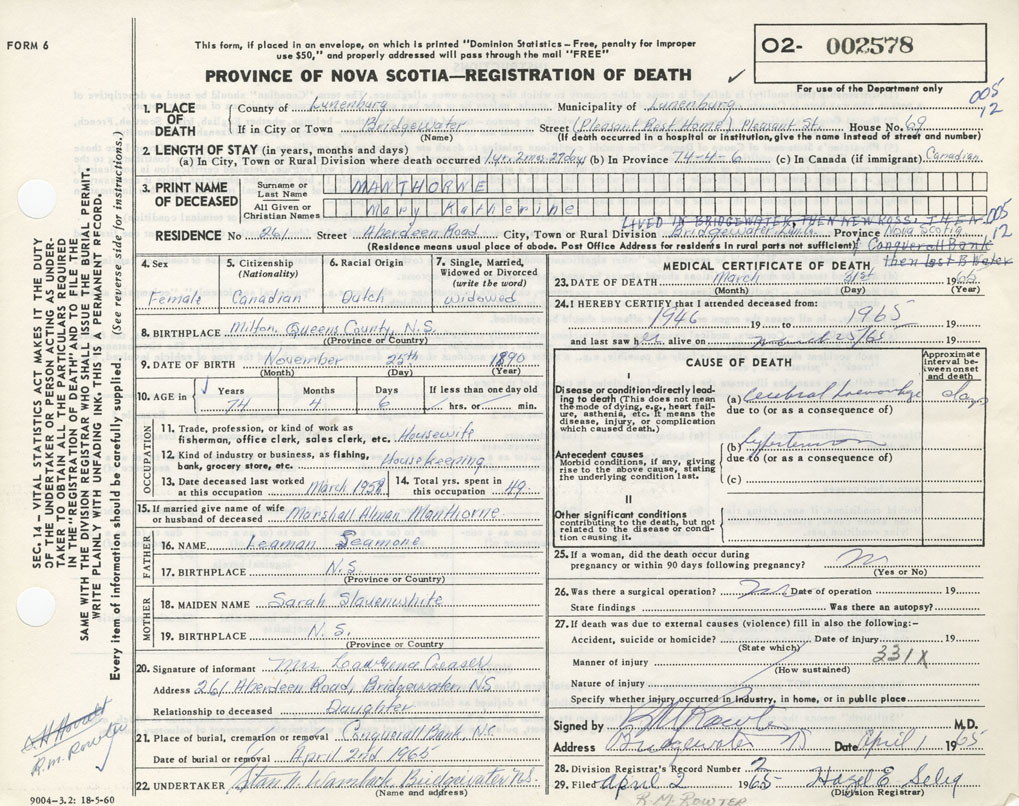 FORM 6
This form, if placed in an envelope, on which is printed "Dominion Statistics – Free, penalty for improper
use $50," and properly addressed will pass through the mail "FREE"
O2- 002578
PROVINCE OF NOVA SCOTIA—REGISTRATION OF DEATH ✓
For use of the Department only
005
12
1. PLACE OF DEATH
County of Lunenburg Municipality of Lunenburg
If in City or Town Bridgewater Street (Pleasant Rest Home) Pleasant St. House No. 69
(Name) (If death occurred in a hospital or institution, give name instead of street and number)
2. LENGTH OF STAY (in years, months and days)
(a) In City, Town or Rural Division where death occurred 1yr. 2mos. 27days (b) In Province 74-4-6 (c) In Canada (if immigrant) Canadian
3. PRINT NAME OF DECEASED
Surname or Last Name MANTHORNE
All Given or Christian Names Mary Katherine
LIVED IN BRIDGEWATER, THEN NEW ROSS, THEN 005
RESIDENCE No 261 Street Aberdeen Road City, Town or Rural Division Province Nova Scotia 12
(Residence means usual place of abode. Post Office Address for residents in rural parts not sufficient) Conquerall Bank
then last B. Water
4. Sex Female
5. Citizenship (Nationality) Canadian
6. Racial Origin Dutch
7. Single, Married, Widowed or Divorced (write the word) widowed
8. BIRTHPLACE Milton, Queens County, N.S.
(Province or Country)
9. DATE OF BIRTH November 25th 1890
(Month) (Day) (Year)
10. AGE in Years 74 Months 4 Days 6 If less than one day old hrs. or min.
OCCUPATION
11. Trade, profession, or kind of work as
fisherman, office clerk, sales clerk, etc. Housewife
12. Kind of industry or business, as fishing,
bank, grocery store, etc. Housekeeping
13. Date deceased last worked at this occupation March 1958
14. Total yrs. spent in this occupation 49
15. If married give name of wife
or husband of deceased Marshall Alman Manthorne
FATHER
16. NAME Leaman Seamone
17. BIRTHPLACE N.S.
(Province or Country)
MOTHER
18. MAIDEN NAME Sarah Slauenwhite
19. BIRTHPLACE N.S.
(Province or Country
20. Signature of informant Mrs Lawrence Creaser
Address 261 Aberdeen Road, Bridgewater N.S
Relationship to deceased Daughter
21. Place of burial, cremation or removal Conquerall Bank, N.S.
Date of burial or removal April 2nd 1965
22. UNDERTAKER Bridgewater N.S.
(Name and address)
MEDICAL CERTIFICATE OF DEATH
23. DATE OF DEATH March 31st 1965
(Month) (Day) (Year)
24. I HEREBY CERTIFY that I attended deceased from:
1946 19 to 1965 19
and last saw her alive on March 25/65 19
CAUSE OF DEATH
Approximate interval between onset and death
I
Disease or condition directly leading to death (This does not mean the mode of dying, e.g., heart failure, asthenia, etc. It means the disease, injury, or complication which caused death.)
(a) Cerebral haemorrhage days
due to (or as a consequence of)
Antecedent causes
Morbid conditions, if any, giving rise to the above cause, stating the underlying condition last.
(b) hypertension
due to (or as a consequence of)
(c)
II
Other significant conditions
contributing to the death, but not related to the disease or condition causing it.
25. If a woman, did the death occur during
pregnancy or within 90 days following pregnancy? no
(Yes or No)
26. Was there a surgical operation? Date of operation 19
State findings Was there an autopsy?
27. If death was due to external causes (violence) fill in also the following:–
Accident, suicide or homicide? Date of injury 19
(State which)
Manner of injury 331X
(How sustained)
Nature of injury
Specify whether injury occurred in industry, in home, or in public place
Signed by R M Rowter M.D.
Address Bridgewater Date April 1 1965
28. Division Registrar's Record Number 2
29. Filed April 2 1965 Hazel E Selig
(Division Registrar)
R.M. ROWTER
SEC. 14 – VITAL STATISTICS ACT MAKES IT THE DUTY
OF THE UNDERTAKER OR PERSON ACTING AS UNDER-
TAKER TO OBTAIN ALL THE PARTICULARS REQUIRED
IN THE "REGISTRATION OF DEATH" AND TO FILE THE
SAME WITH THE DIVISION REGISTRAR WHO SHALL ISSUE THE BURIAL PERMIT.
WRITE PLAINLY WITH UNFADING INK. THIS IS A PERMANENT RECORD.
Every item of information should be carefully supplied. (See reverse side for instructions.)
R.M. Rowter
9004–3.2: 18-5-60